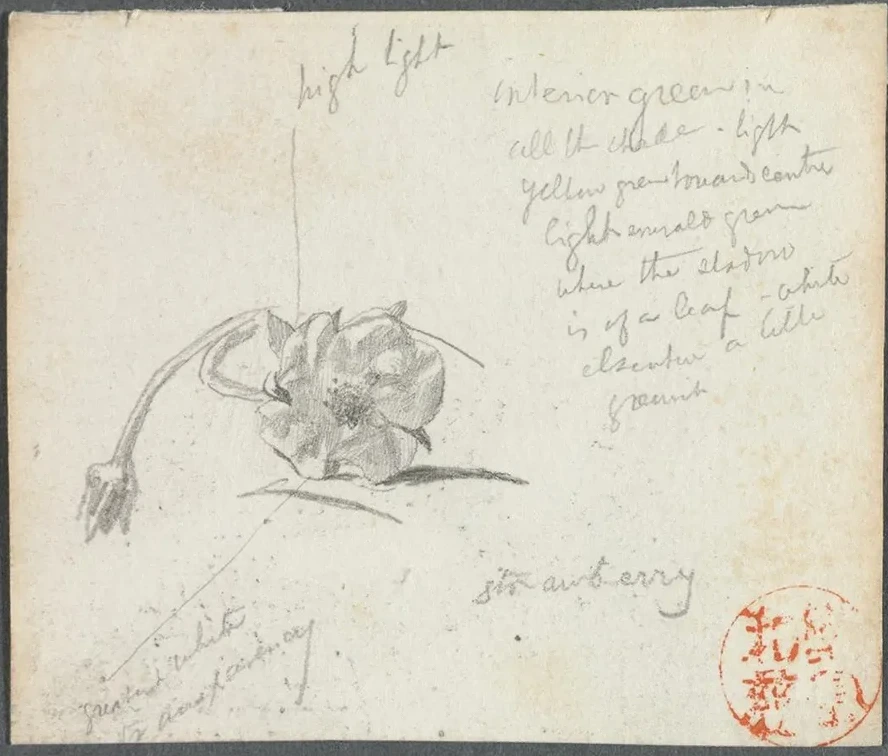 high light
interior green in
all the shade - light
yellow green towards centre
light emerald green
where the shadow
is of a leaf - white
elsewhere a little
greenish
strawberry
greenish white
transparency